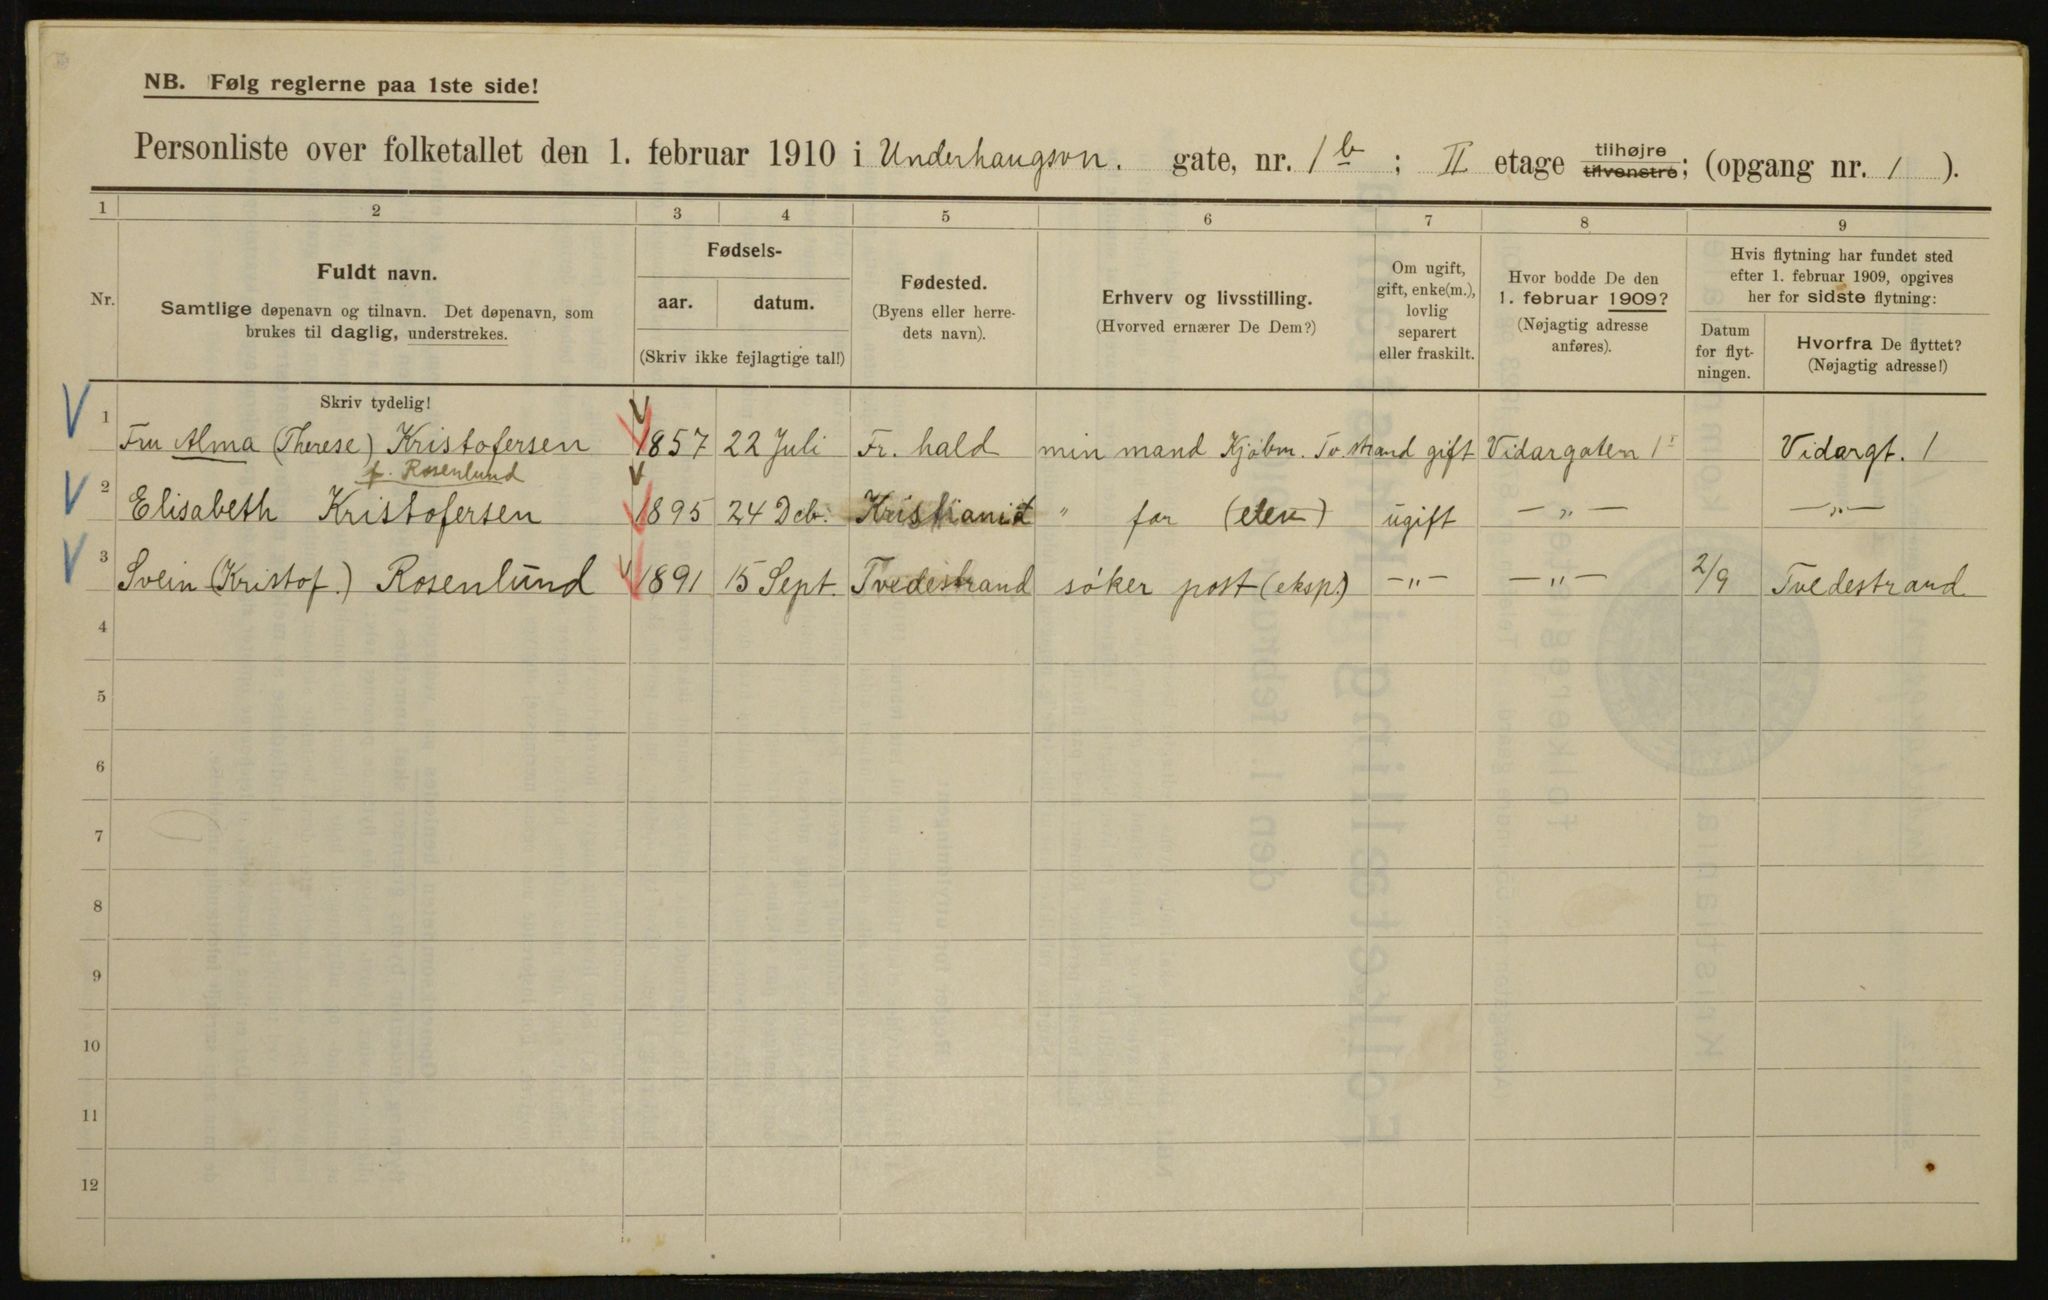 NB. Følg reglerne paa 1ste side!
Personliste over folketallet den 1. februar 1910 i Underhaugsvn. gate, nr. 1b; II etage tilhøjre tilvenstre; (opgang nr. 1).
1 2 3 4 5 6 7 8 9
Nr.
Fuldt navn.
Samtlige døpenavn og tilnavn. Det døpenavn, som
brukes til daglig, understrekes.
Fødsels-
aar. datum.
(Skriv ikke fejlagtige tal!)
Fødested.
(Byens eller herre-
dets navn).
Erhverv og livsstilling.
(Hvorved ernærer De Dem?)
Om ugift,
gift, enke(m.),
lovlig
separert
eller fraskilt.
Hvor bodde De den
1. februar 1909?
(Nøjagtig adresse
anføres).
Hvis flytning har fundet sted
efter 1. februar 1909, opgives
her for sidste flytning:
Datum
for flyt-
ningen.
Hvorfra De flyttet?
(Nøjagtig adresse!)
Skriv tydelig!
1 Fru Alma (Therese) Kristofersen 1857 22 Juli Fr. hald min mand Kjøbm. Tv.strand gift Vidargaten 1 Vidargt. 1
f. Rosenlund
2 Elisabeth Kristofersen 1895 24 Dcb. Kristiania " far (elev) ugift —"— —"—
3 Svein (Kristof.) Rosenlund 1891 15 Sept. Tvedestrand søker post (eksp.) —"— —"— 2/9 Tvedestrand
4
5
6
7
8
9
10
11
12